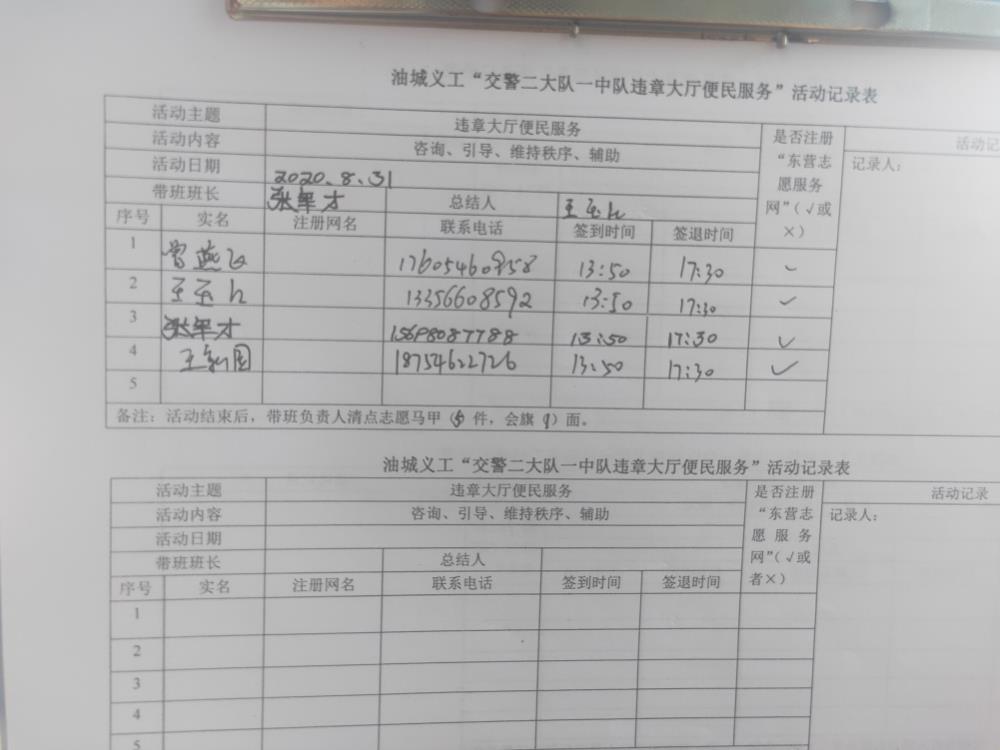 油城义工“交警二大队一中队违章大厅便民服务”活动记录表
活动主题 违章大厅便民服务 是否注册“东营志愿服务网”（√或×） 活动记
活动内容 咨询、引导、维持秩序、辅助 记录人：
活动日期 2020.8.31
带班班长 张军才 总结人 王玉
序号 实名 注册网名 联系电话 签到时间 签退时间
1 曾燕飞 17605460958 13:50 17:30 ✓
2 王玉 13356608592 13:50 17:30 ✓
3 张军才 15698087788 13:50 17:30 ✓
4 王新国 18754622726 13:50 17:30 ✓
5
备注：活动结束后，带班负责人清点志愿马甲（5 件，会旗 1）面。
油城义工“交警二大队一中队违章大厅便民服务”活动记录表
活动主题 违章大厅便民服务 是否注册“东营志愿服务网”（√或者×） 活动记录
活动内容 咨询、引导、维持秩序、辅助 记录人：
活动日期
带班班长 总结人
序号 实名 注册网名 联系电话 签到时间 签退时间
1
2
3
4
5